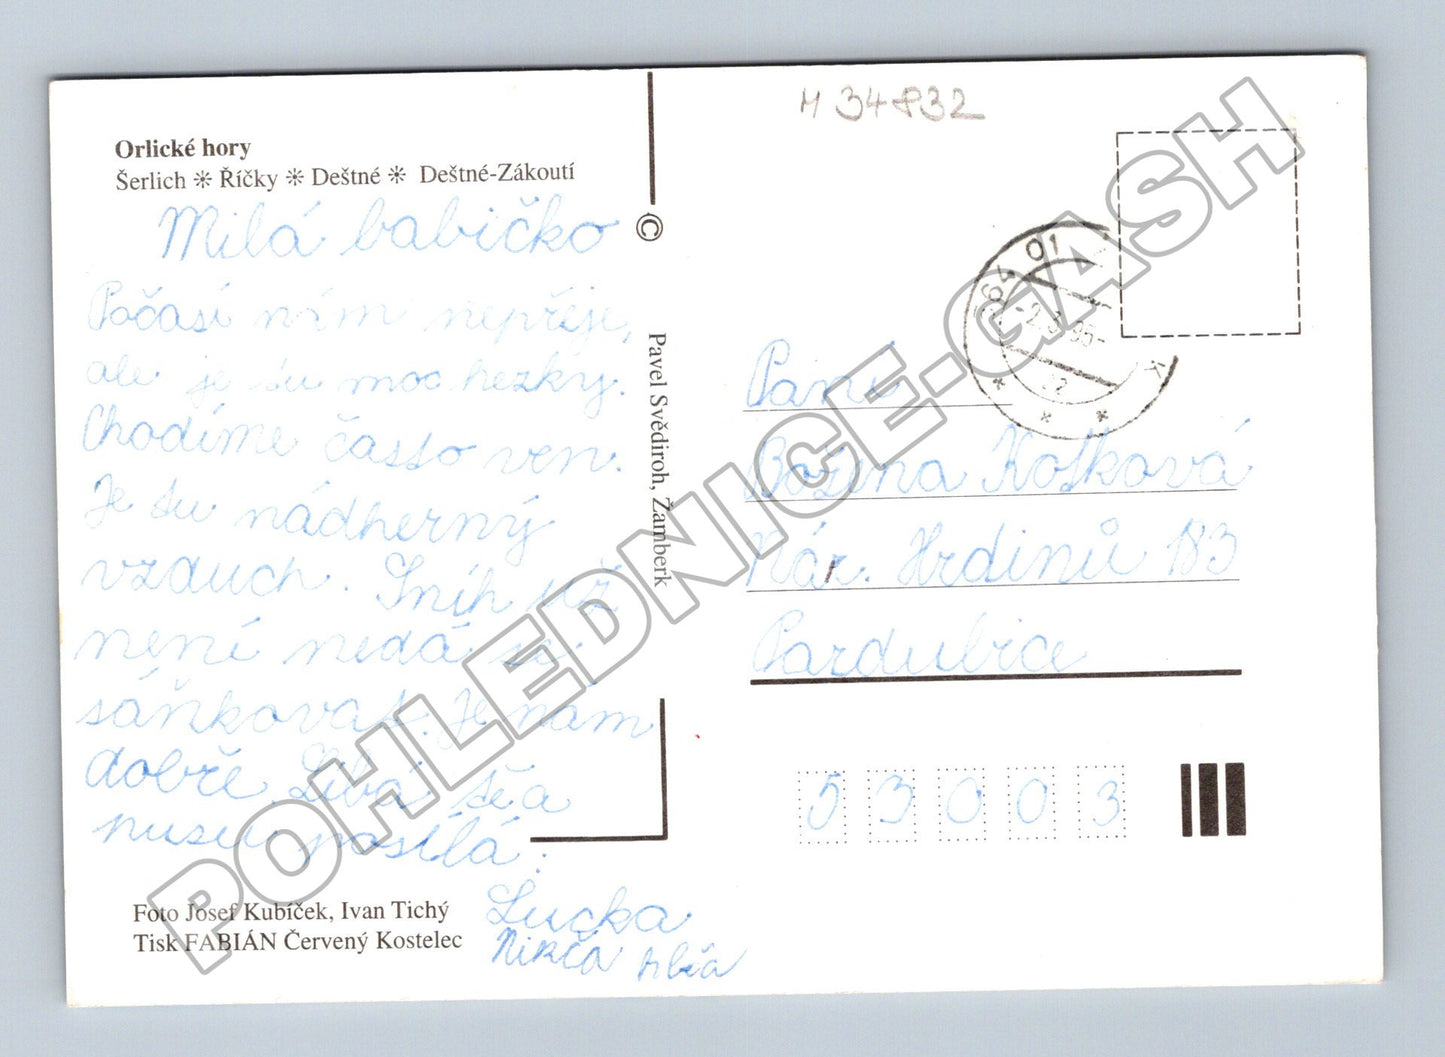 Orlické hory
Šerlich ☼ Říčky ☼ Deštné ☼ Deštné-Zákoutí
Milá babičko
Počasí nám nepřeje,
ale je tu moc hezky.
Chodíme často ven.
Je tu nádherný
vzduch. Sníh už
není nedá se
sáňkovat. Je nám
dobře. Líbá tě a
pusu posílá:
Lucka
Foto Josef Kubíček, Ivan Tichý
Tisk FABIÁN Červený Kostelec
©
Pavel Svědiroh, Žamberk
M 34832
64 01
-2.3.95-
Paní
Božena Kotková
Nár. Hrdinů 183
Pardubice
53003
POHLEDNICE-GASH